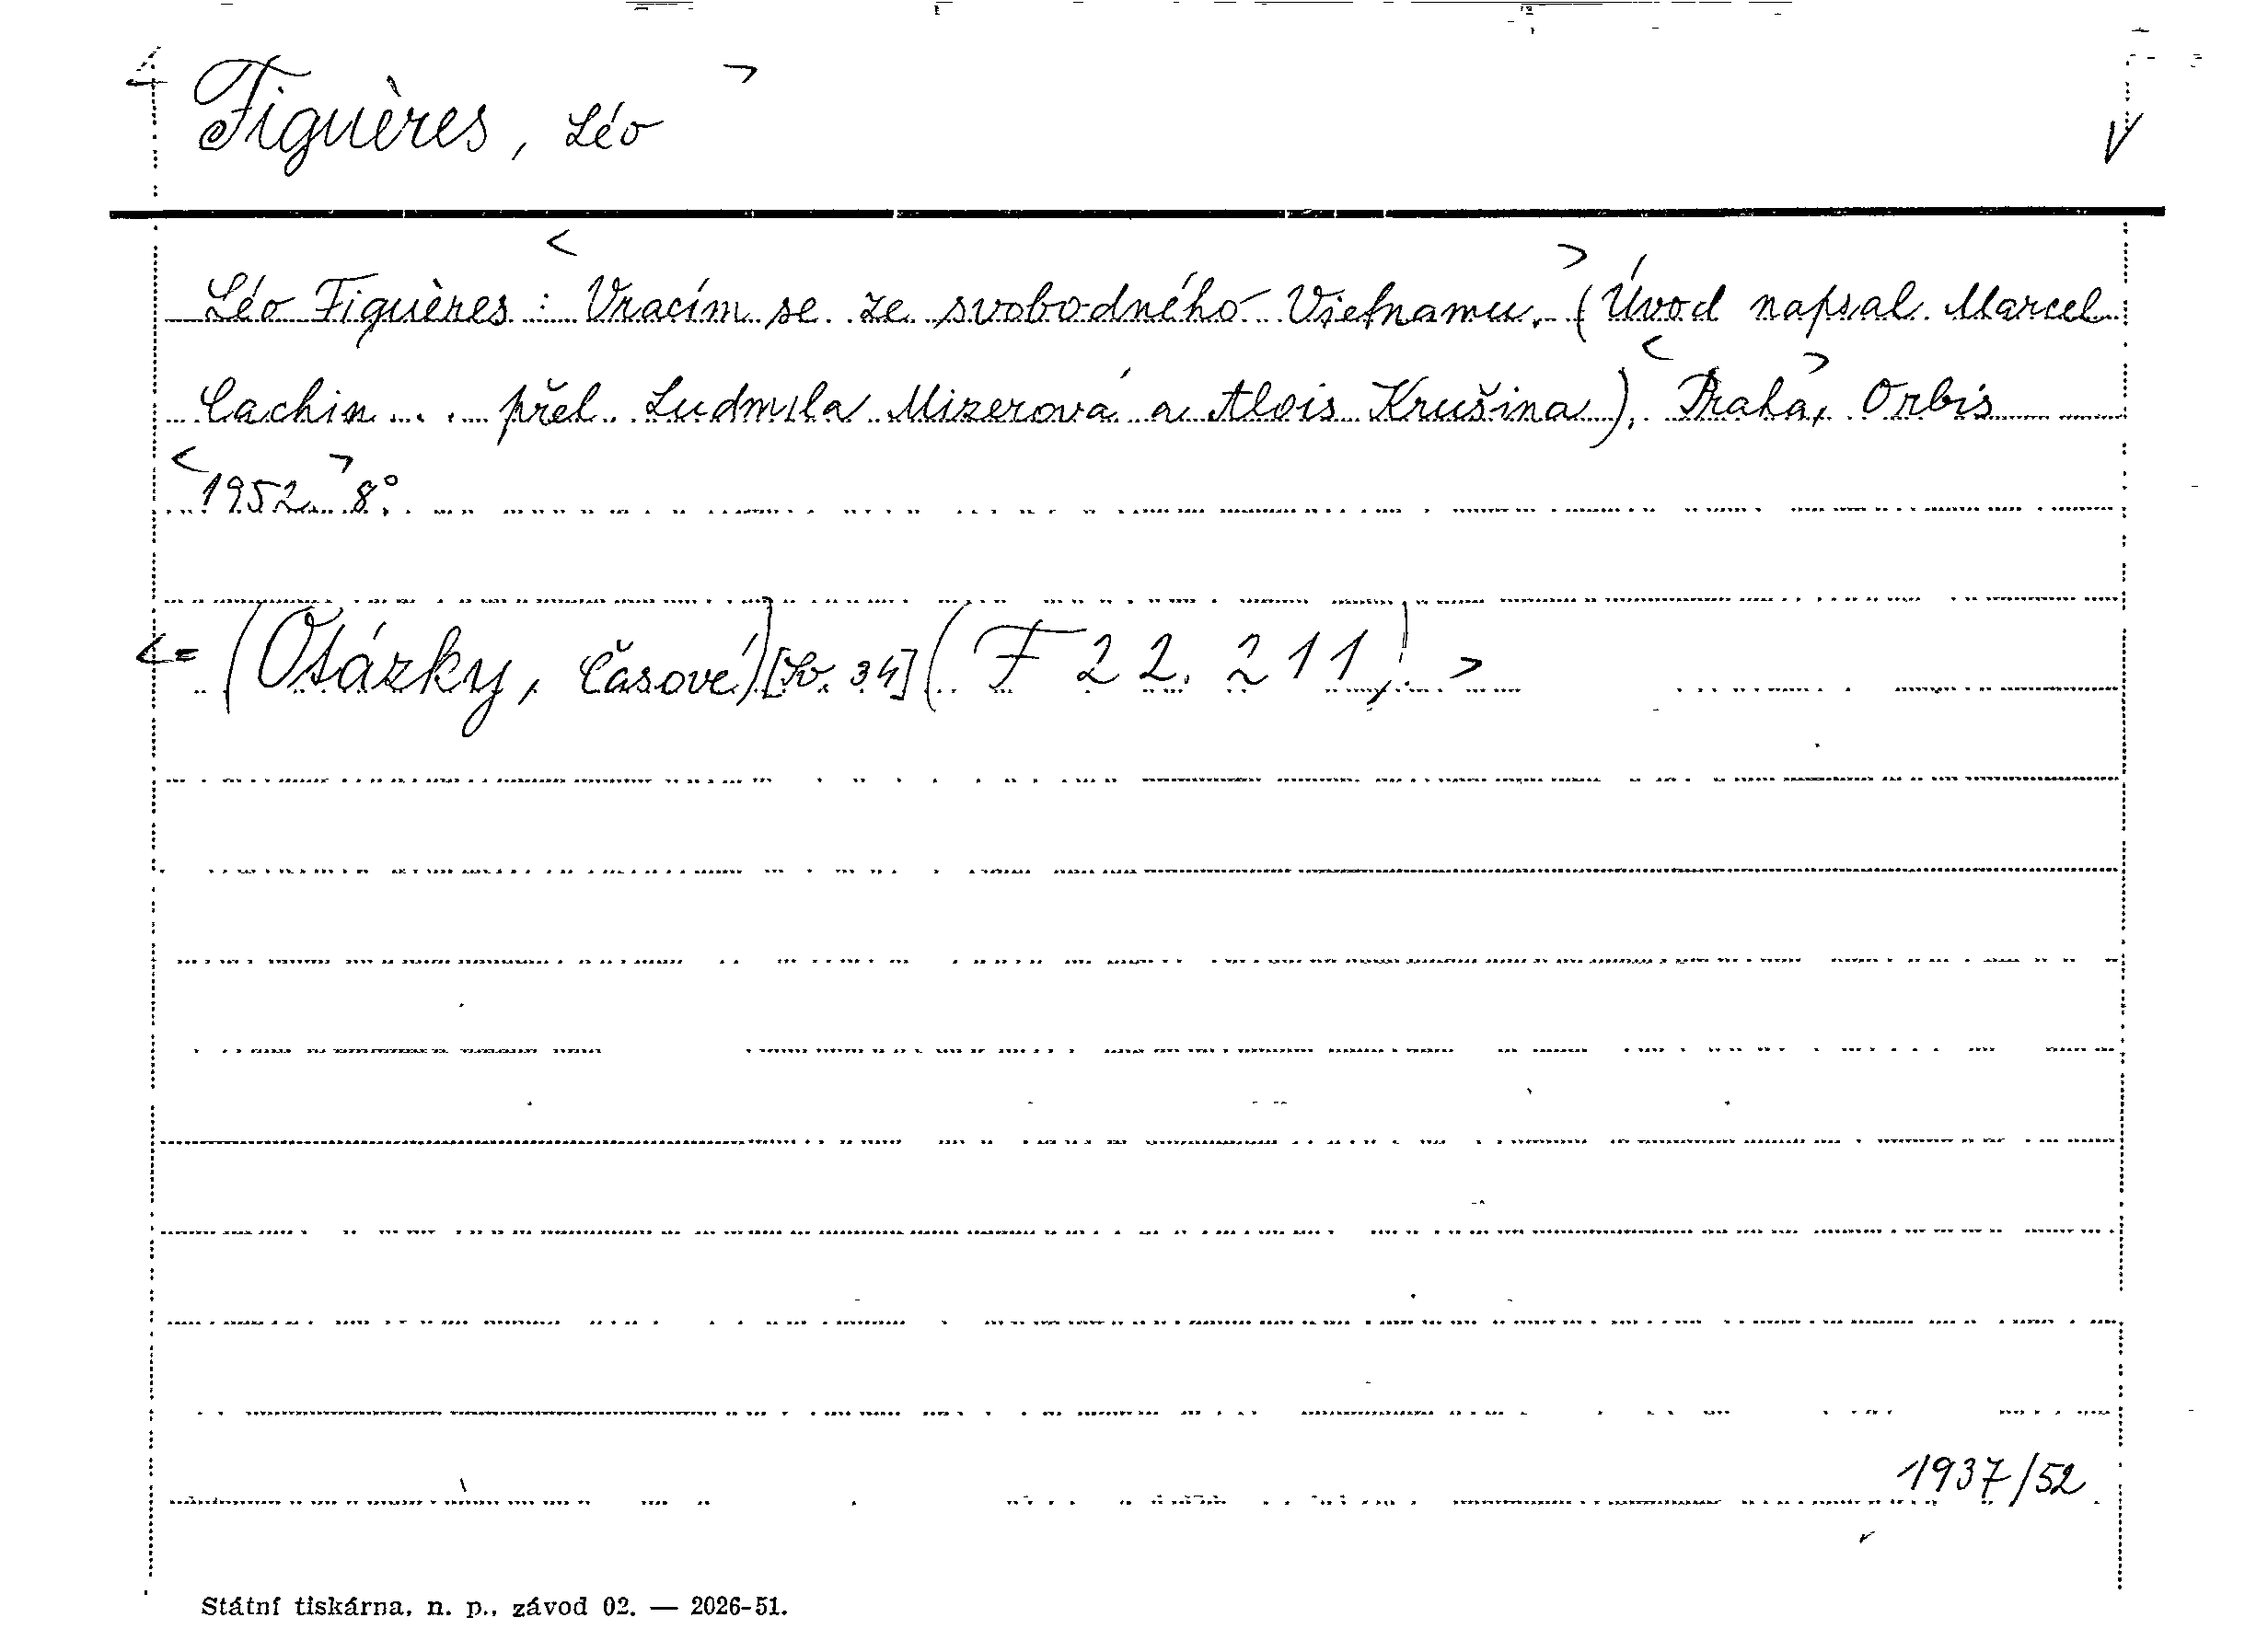 Figuères, Léo
Léo Figuères: Vracím se ze svobodného Vietnamu. (Úvod napsal Marcel
Cachin... přel. Ludmila Mizerová a Alois Krušina). Praha, Orbis
1952. 8°.
(Otázky, časové) [Sv. 34] (F 22.211).
1937/52
Státní tiskárna, n. p., závod 02. — 2026-51.